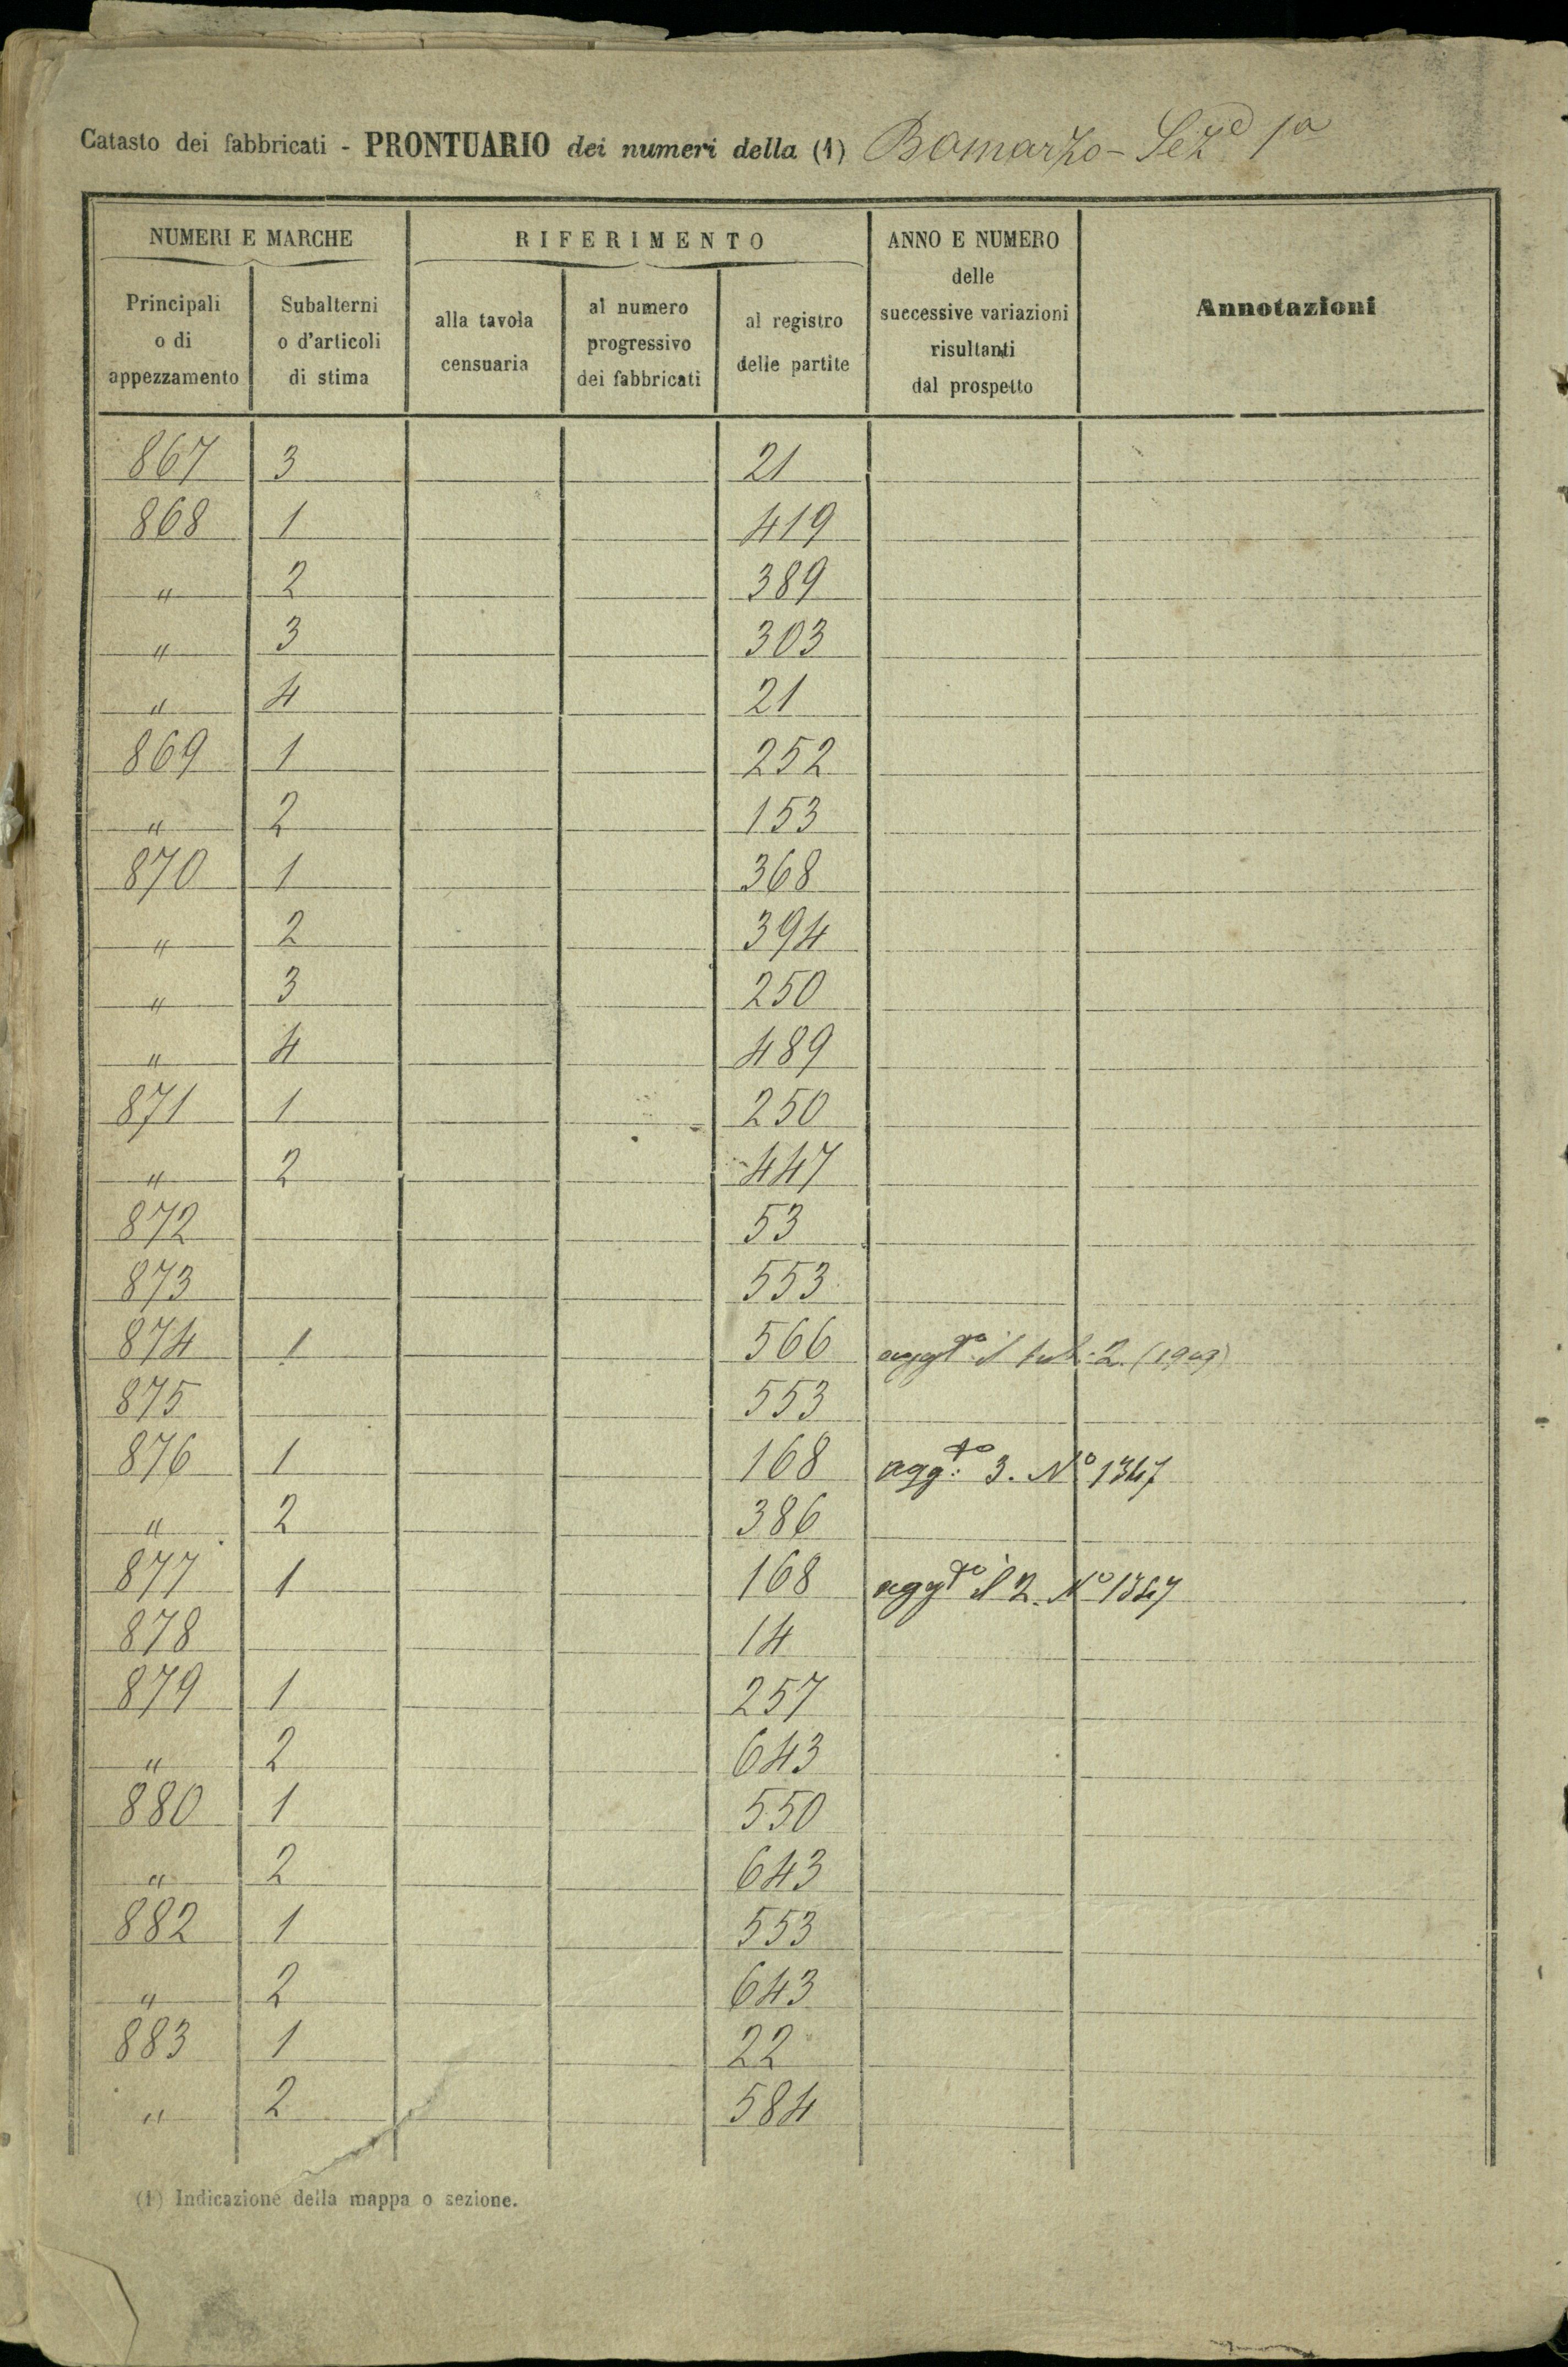 Catasto dei fabbricati - PRONTUARIO dei numeri della (1) Bomarzo - Sez.e 1a
NUMERI E MARCHE RIFERIMENTO ANNO E NUMERO delle successive variazioni risultanti dal prospetto Annotazioni
Principali o di appezzamento Subalterni o d'articoli di stima alla tavola censuaria al numero progressivo dei fabbricati al registro delle partite
867 3 21
868 1 419
" 2 389
" 3 303
" 4 21
869 1 252
" 2 153
870 1 368
" 2 394
" 3 250
" 4 489
871 1 250
" 2 447
872 53
873 553
874 1 566 aggto il sub. 2.
875 553
876 1 168 aggto: 3. No 1347
" 2 386
877 1 168 aggto il 2. No 1347
878 14
879 1 257
" 2 643
880 1 550
" 2 643
882 1 553
" 2 643
883 1 22
" 2 584
(1) Indicazione della mappa o sezione.